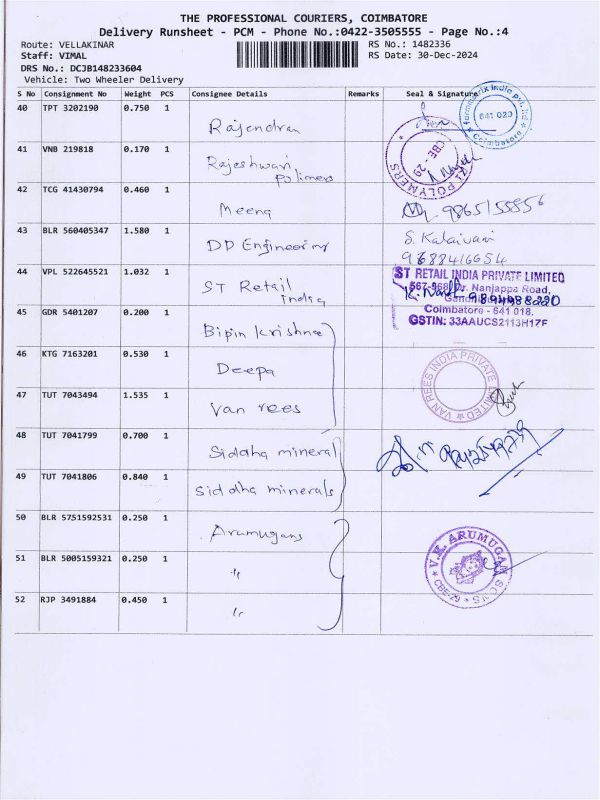 THE PROFESSIONAL COURIERS, COIMBATORE
Delivery Runsheet - PCM - Phone No.:0422-3505555 - Page No.:4
Route: VELLAKINAR
RS No.: 1482336
Staff: VIMAL
RS Date: 30-Dec-2024
DRS No.: DCJB148233604
Vehicle: Two Wheeler Delivery
S No Consignment No Weight PCS Consignee Details Remarks Seal & Signature
40 TPT 3202190 0.750 1 Rajendran
farmmatrix india pvt. ltd 641 029 Coimbatore
41 VNB 219818 0.170 1 Rajeshwari
polimers
POLYMERS CBE - 29
42 TCG 41430794 0.460 1 Meena
43 BLR 560405347 1.580 1 DD Engineering S. Kalaivani
9688416654
44 VPL 522645521 1.032 1 ST Retail
India
ST RETAIL INDIA PRIVATE LIMITED
Dr. Nanjappa Road,
Coimbatore - 641 018.
GSTIN: 33AAUCS2113H17F
45 GDR 5401207 0.200 1 Bipin Krishna
46 KTG 7163201 0.530 1 Deepa
47 TUT 7043494 1.535 1 Van rees
VAN REES INDIA PRIVATE LIMITED
48 TUT 7041799 0.700 1 Siddha mineral
49 TUT 7041806 0.840 1 Siddha minerals
50 BLR 5751592531 0.250 1 Arumugans
51 BLR 5005159321 0.250 1 "
V.K. ARUMUGAM SONS CBE-29
52 RJP 3491884 0.450 1 "